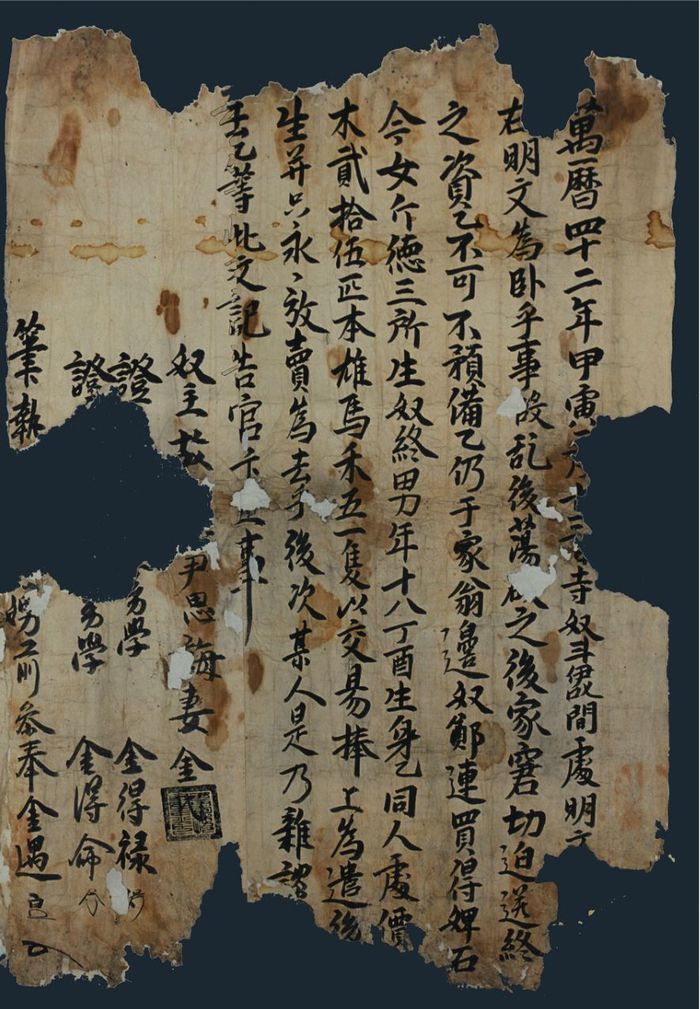 萬曆四十二年甲寅 月十 寺奴斗 間處明文
右明文爲卧乎事段乱後蕩敗之後家窘切迫送終
之資乙不可不預備乙仍于家翁邊奴鄭連買得婢石
今女介德三所生奴終男年十八丁酉生身乙同人處價
木貳拾伍匹本雄馬禾五一隻以交易捧上爲遣後
生并以永〻放賣爲去乎後次某人是乃雜談
爲乙等此文記告官卞正事
奴主故 尹思海妻金
證 幼學 金得祿
證 幼學 金得命
筆執 甥前參奉金遇